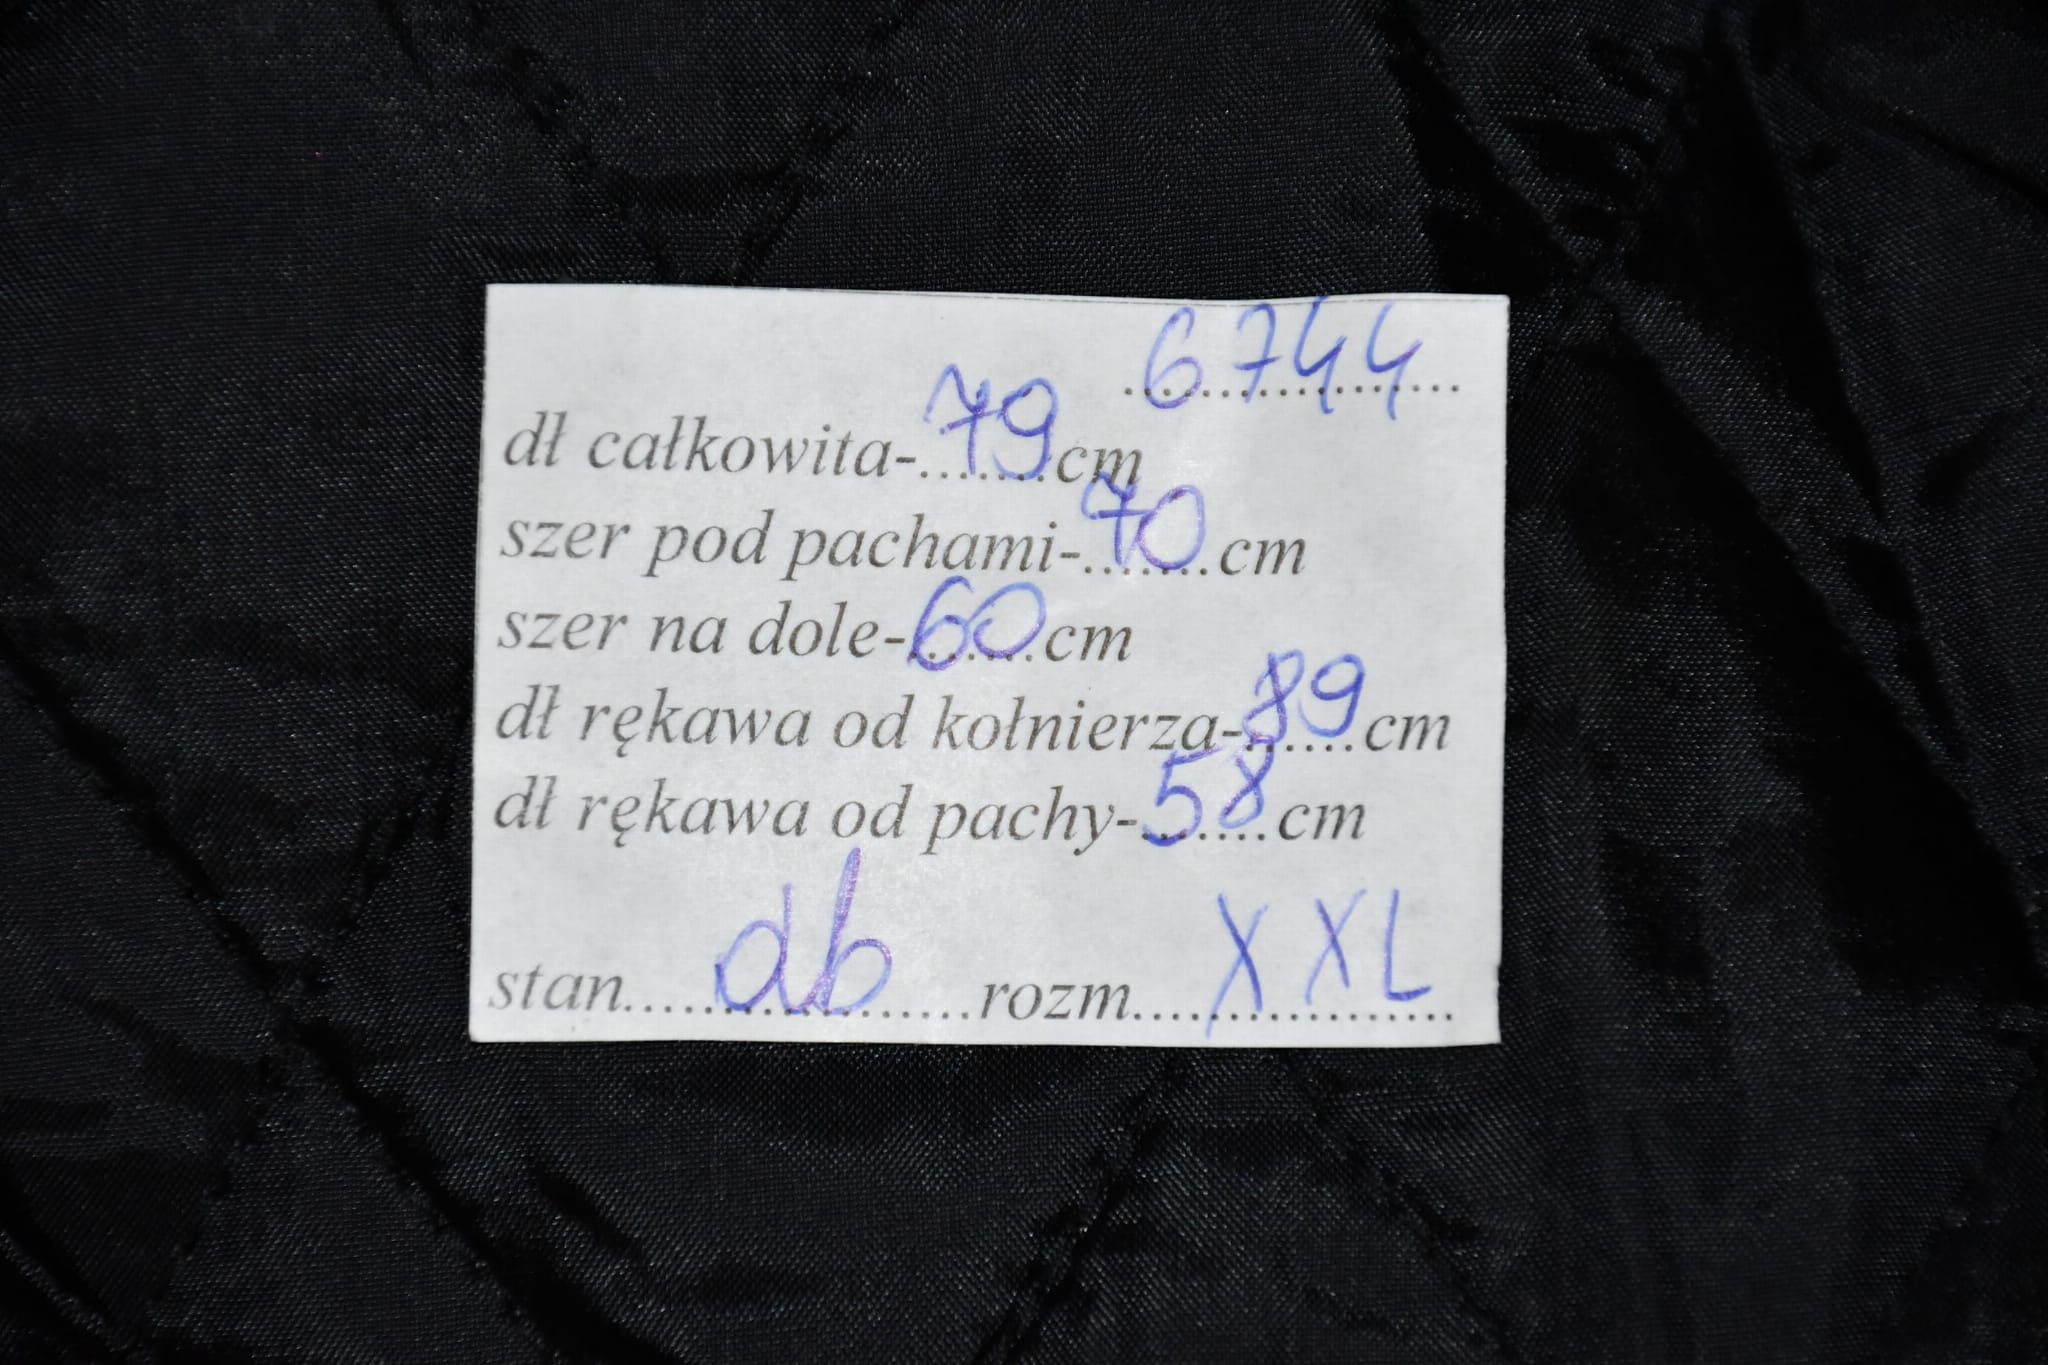 6744
dł całkowita-79cm
szer pod pachami-70cm
szer na dole-60cm
dł rękawa od kołnierza-89cm
dł rękawa od pachy-58cm
stan db rozm XXL